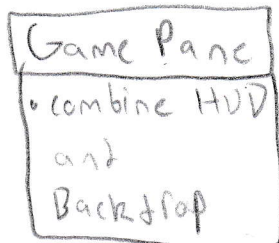 Game Pane
• combine HUD
and
Backdrop